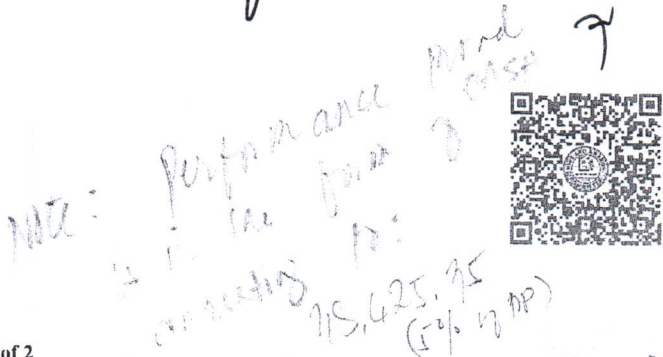 NOTE: Performance Bond
is in the form of CASH
amounting to:
(5% of
of 2